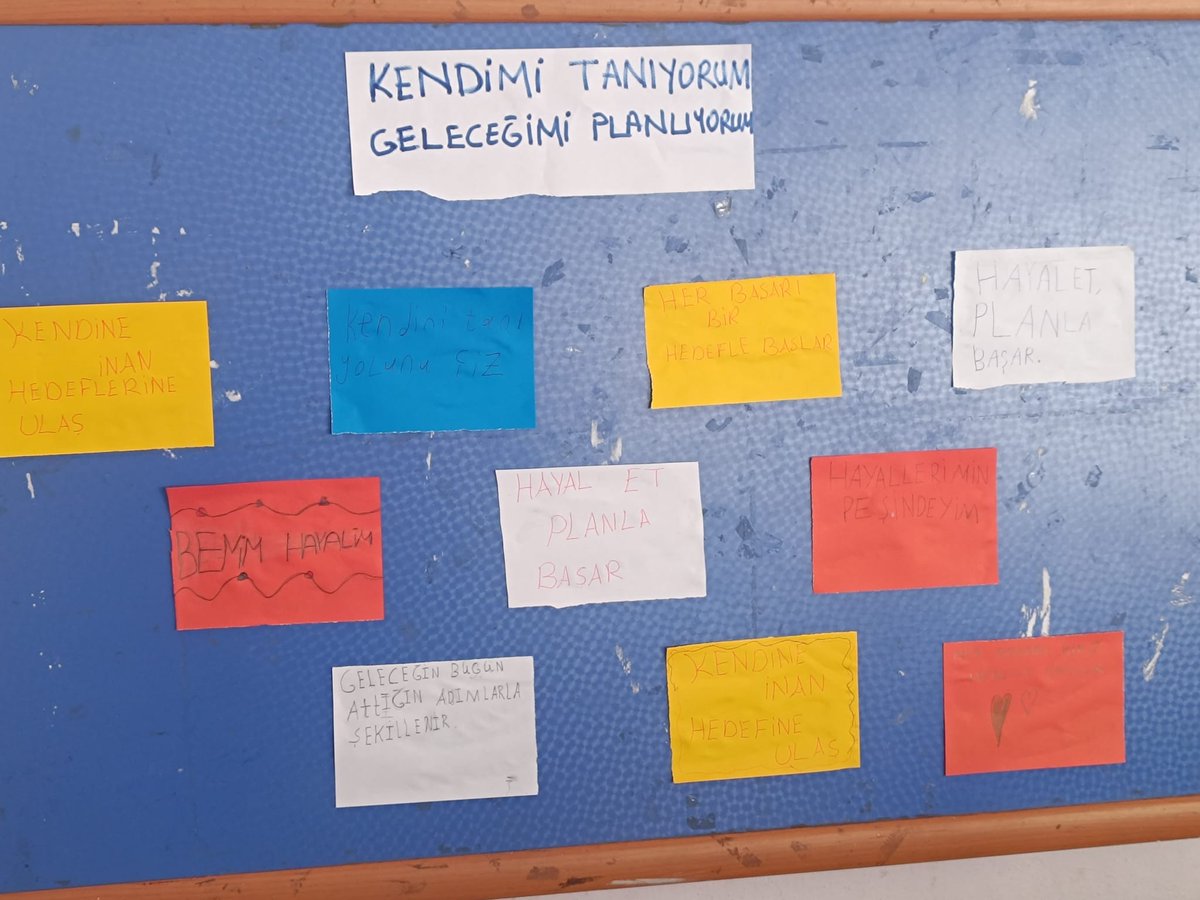 KENDİMİ TANIYORUM
GELECEĞİMİ PLANLIYORUM
KENDİNE
İNAN
HEDEFLERİNE
ULAŞ
Kendini tanı
yolunu çiz
HER BAŞARI
BİR
HEDEFLE BAŞLAR
HAYAL ET,
PLANLA
BAŞAR.
BENİM HAYALİM
HAYAL ET
PLANLA
BAŞAR
HAYALLERİMİN
PEŞİNDEYİM
GELECEĞİN BUGÜN
ATTIĞIN ADIMLARLA
ŞEKİLLENİR.
KENDİNE
İNAN
HEDEFİNE
ULAŞ